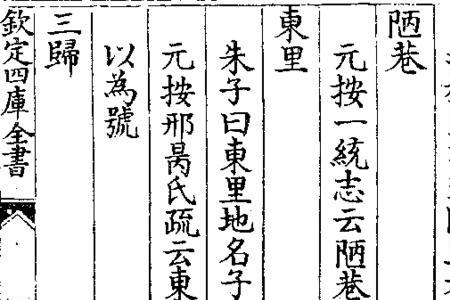 陋巷
元按一統志云陋巷
東里
朱子曰東里地名子
元按邢昺氏疏云東
以為號
三歸
欽定四庫全書